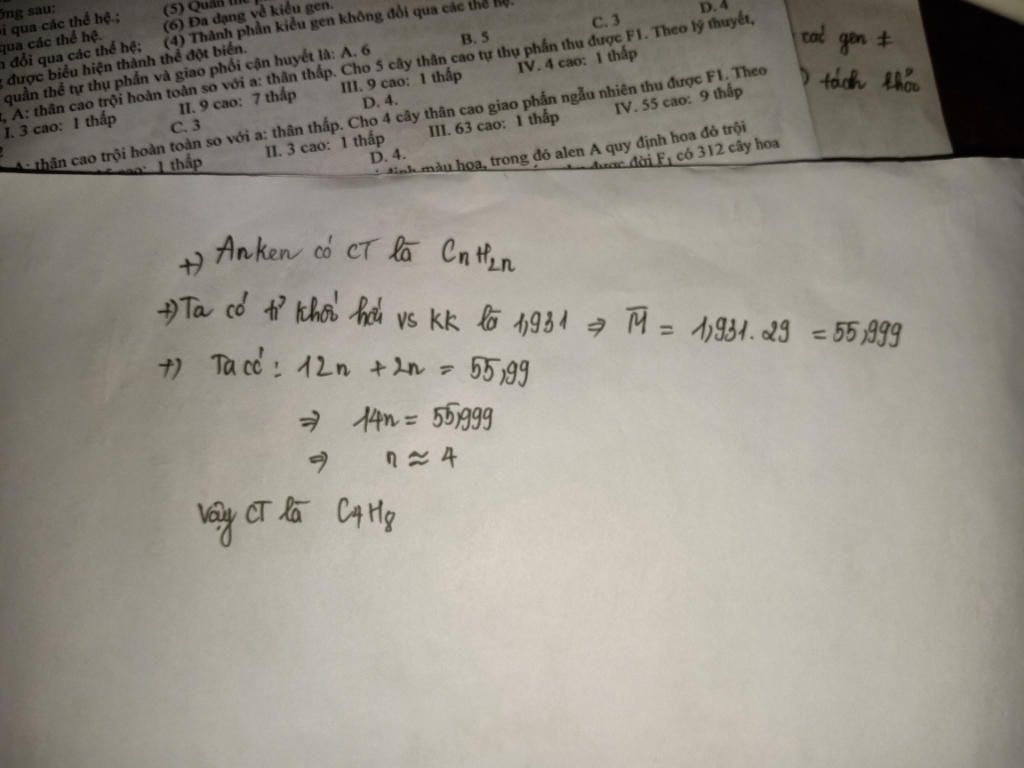 ống sau: (5) Quần thể
ổi qua các thế hệ.; (6) Đa dạng về kiểu gen.
qua các thế hệ. (4) Thành phần kiểu gen không đổi qua các thế hệ.
đổi qua các thế hệ;
được biểu hiện thành thể đột biến.
quần thể tự thụ phấn và giao phối cận huyết là: A. 6 B. 5 C. 3 D. 4
A: thân cao trội hoàn toàn so với a: thân thấp. Cho 5 cây thân cao tự thụ phấn thu được F1. Theo lý thuyết,
I. 3 cao: 1 thấp II. 9 cao: 7 thấp III. 9 cao: 1 thấp IV. 4 cao: 1 thấp
C. 3 D. 4.
A: thân cao trội hoàn toàn so với a: thân thấp. Cho 4 cây thân cao giao phấn ngẫu nhiên thu được F1. Theo
cao: 1 thấp II. 3 cao: 1 thấp III. 63 cao: 1 thấp IV. 55 cao: 9 thấp
D. 4.
định màu hoa, trong đó alen A quy định hoa đỏ trội
được đời F₁ có 312 cây hoa
các gen ≠
) tách khỏi
+) Anken có CT là CnH2n
+) Ta có tỉ khối hơi vs KK là 1,931 ⇒ M̅ = 1,931.29 = 55,999
+) Ta có: 12n + 2n = 55,99
⇒ 14n = 55,999
⇒ n ≈ 4
Vậy CT là C4H8